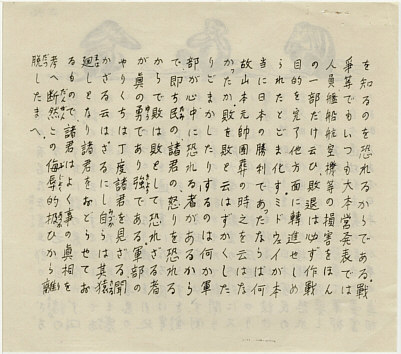 を知るのを恐れるからである。戰
爭等でもいつも大本営発表では
人員艦船航空機等の損害をほん
の一部だけ云ひ、敗退は必ず作戰
目的を完了他方面に轉進せしめ
られたとごま化すミドウェイが本
当に日本の勝利であったならば何
故山本元帥國葬の時之を云はな
かったか。敗を敗と云はずかくした
りごまかしたりするのは何か軍
部が心中に恐れる者があるから
で即ち民の諸君の怒りを恐れる
からで敗は敗として恐れざる者
が眞の勇であり強である。軍部の
やりくちは丁度諸君を見ざる聞
かざる云はざるにし自らは其猿
廻しとなり諸君をおどらせてお
るもので、諸君はよく事の眞相を
考へ断然この侮辱的扱ひから離
脱したまへ。